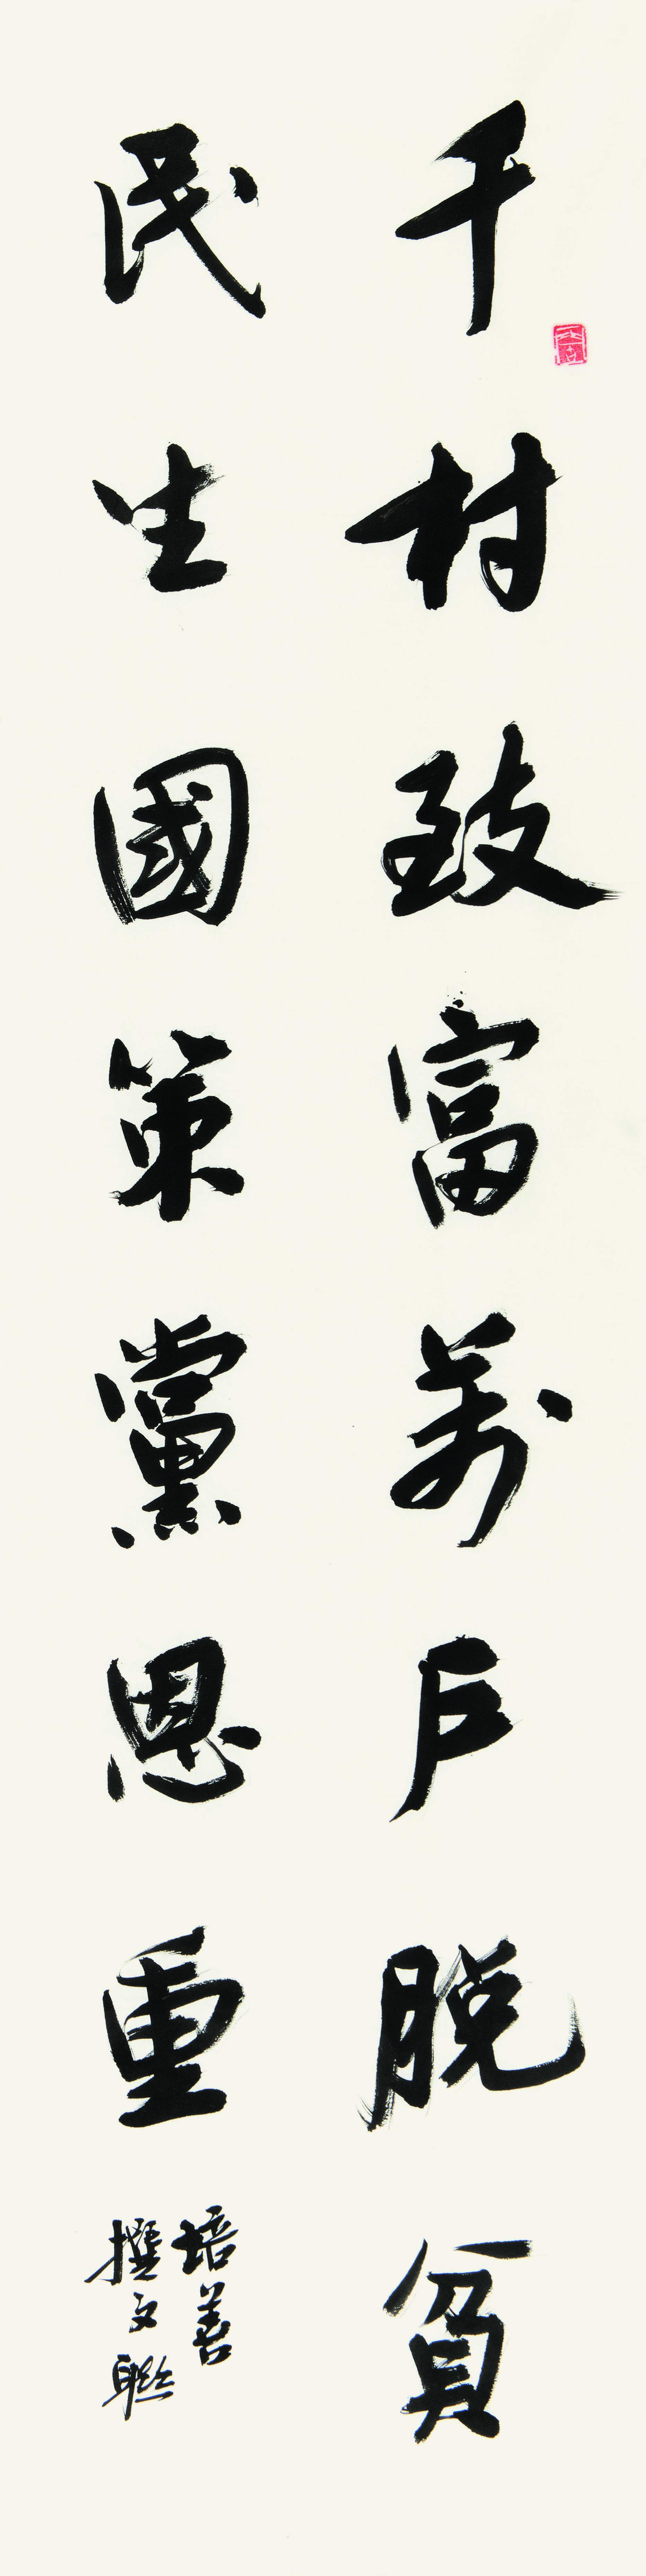 千村致富萬戶脱貧
民生國策黨恩重
培善
撰文聯